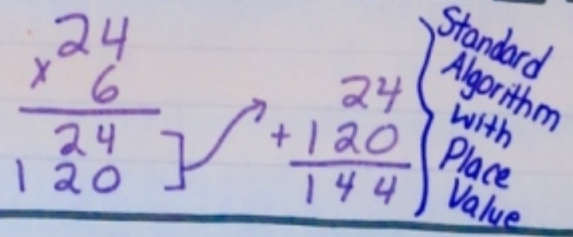 24
x 6
24
120
24
+120
144
Standard
Algorithm
with
Place
Value